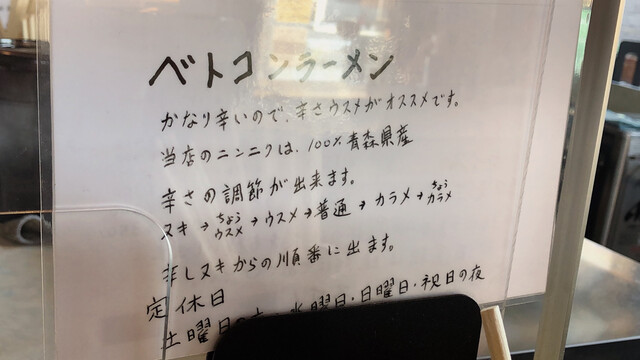 ベトコンラーメン
かなり辛いので、辛さウスメがオススメです。
当店のニンニクは、100%青森県産
辛さの調節が出来ます。
ヌキ→ちょうウスメ→ウスメ→普通→カラメ→ちょうカラメ
辛しヌキからの順番に出ます。
定休日
土曜日の 水曜日・日曜日・祝日の夜